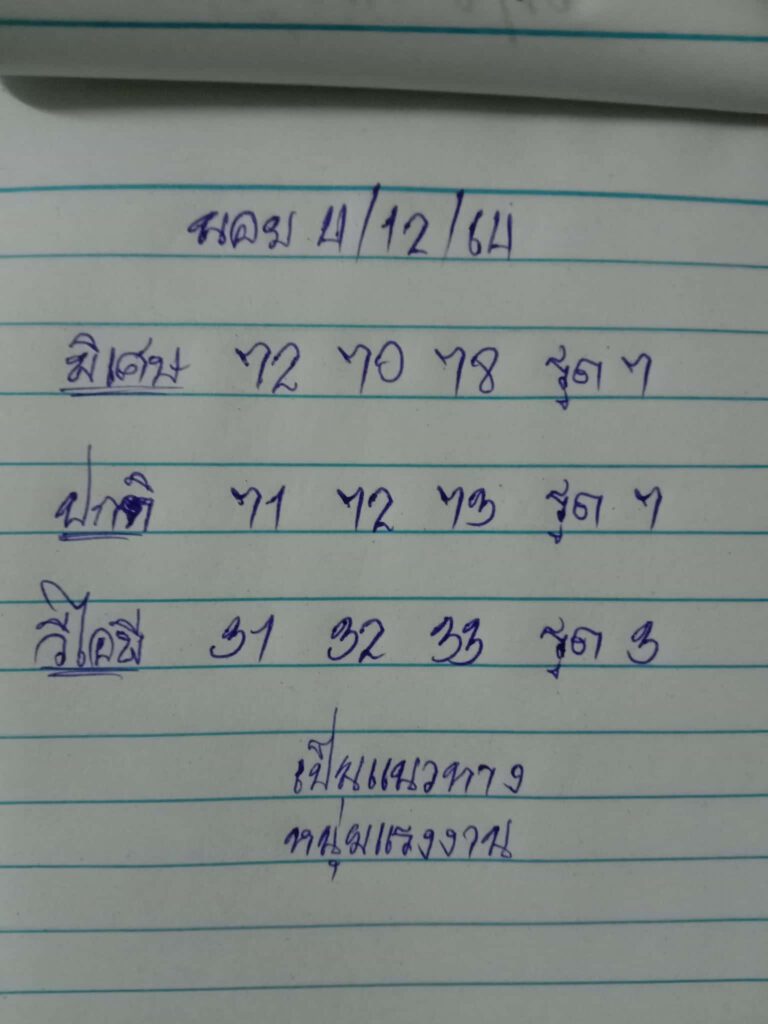 ฮานอย 4/12/64
พิเศษ 72 70 78 รูด 7
ปกติ 71 72 73 รูด 7
วีไอพี 31 32 33 รูด 3
เป็นแนวทาง
หนุ่มแรงงาน